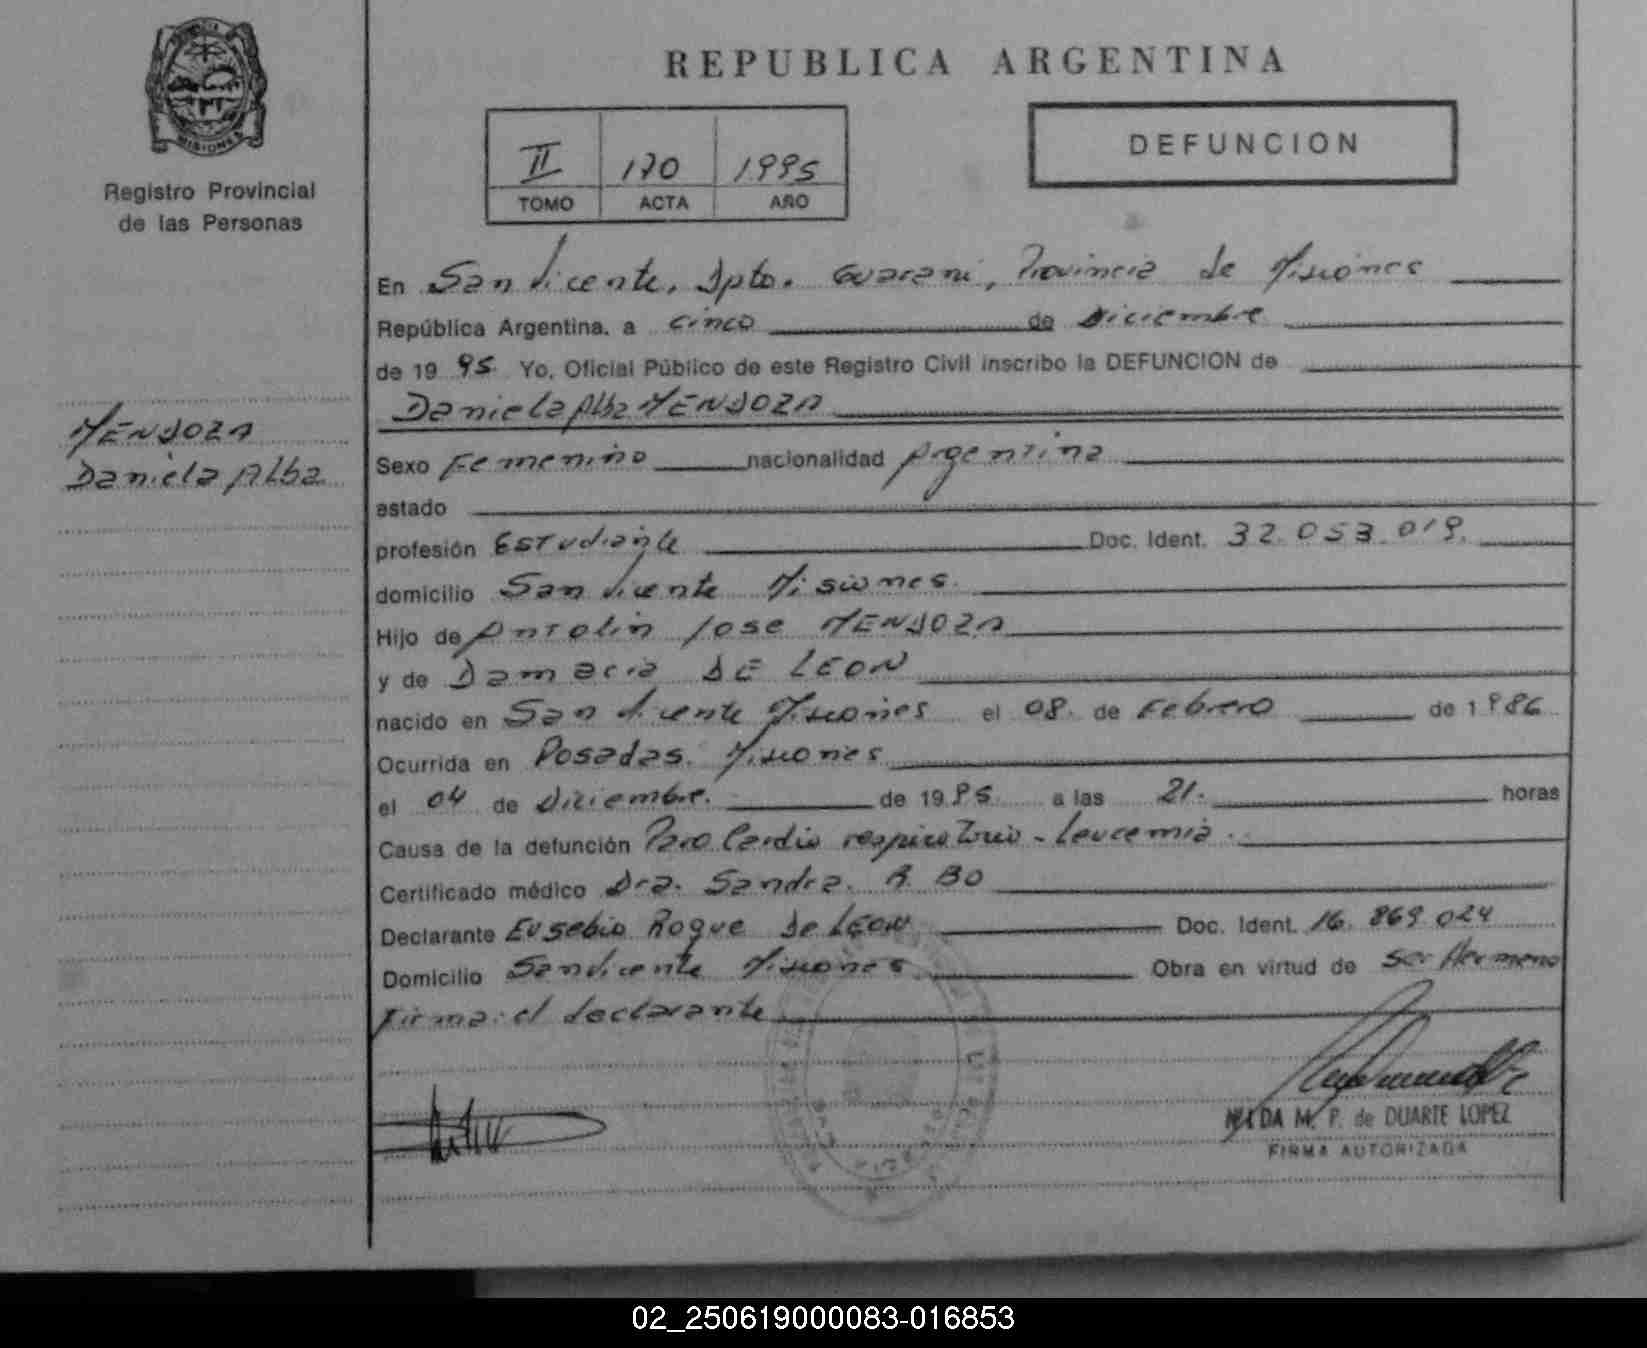 REPUBLICA ARGENTINA
MISIONES
Registro Provincial
de las Personas
II 170 1995
TOMO ACTA AÑO
DEFUNCION
En San Vicente, Dpto. Guarani, Provincia de Misiones
República Argentina, a cinco de Diciembre
de 19 95. Yo, Oficial Público de este Registro Civil inscribo la DEFUNCION de
Daniela Alba MENDOZA
MENDOZA
Daniela Alba
Sexo Femenino nacionalidad Argentina
estado
profesión Estudiante Doc. Ident. 32.053.019.
domicilio San Vicente Misiones.
Hijo de Antolin Jose MENDOZA
y de Damacia DE LEON
nacido en San Vicente Misiones el 08. de Febrero de 1986
Ocurrida en Posadas. Misiones
el 04 de Diciembre. de 19 95 a las 21. horas
Causa de la defunción Paro Cardio respiratorio - Leucemia.
Certificado médico Dra. Sandra. R. BO
Declarante Eusebio Roque De LEON Doc. Ident. 16.869.024
Domicilio San Vicente Misiones Obra en virtud de Ser Hermano
Firma: el declarante
M. P. de DUARTE LOPEZ
FIRMA AUTORIZADA
02_250619000083-016853